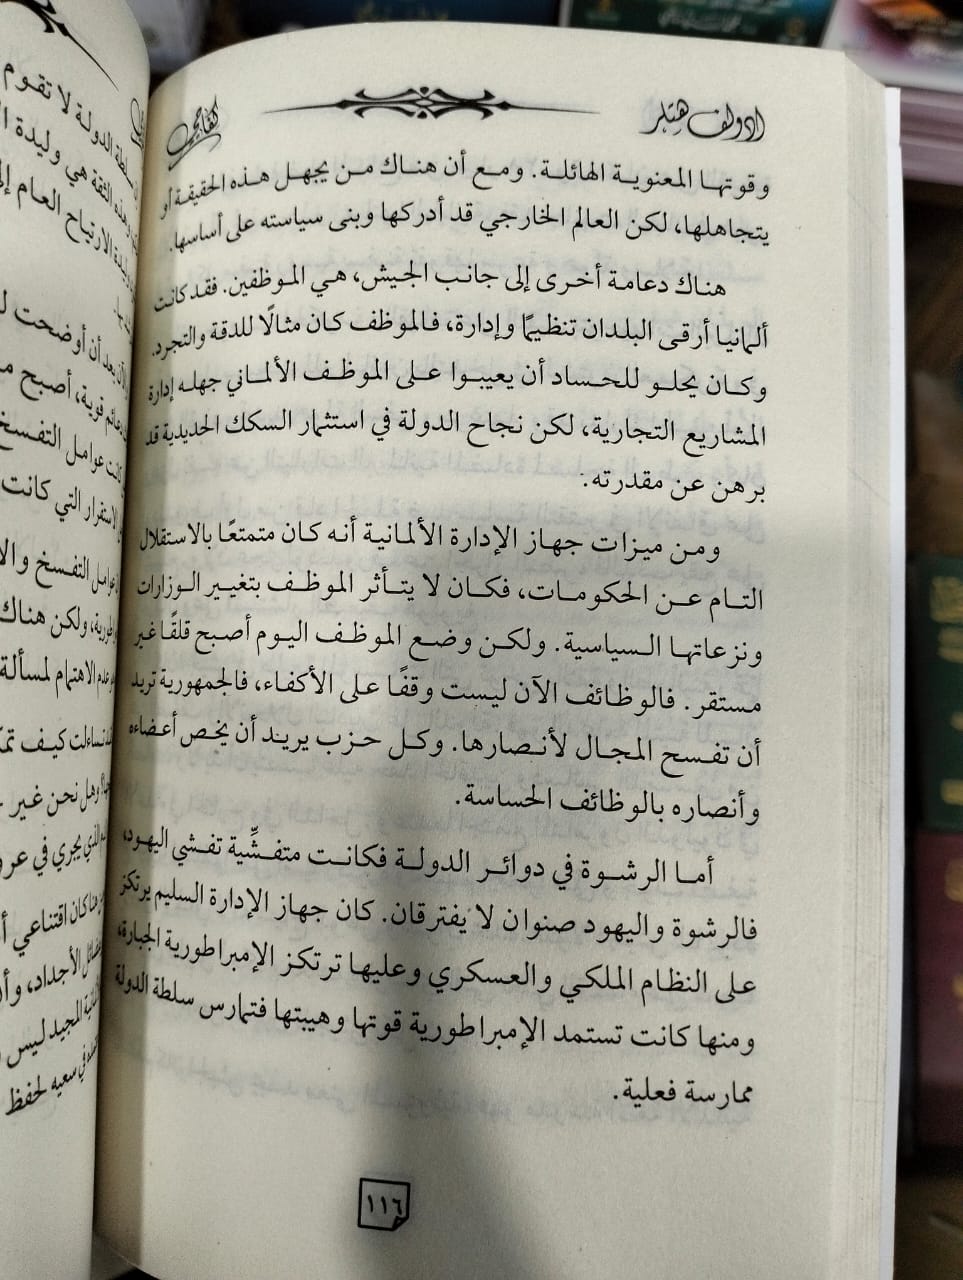 ادولف هتلر
كفاحي
وقوتها المعنوية الهائلة. ومع أن هناك من يجهل هذه الحقيقة أو
يتجاهلها، لكن العالم الخارجي قد أدركها وبنى سياسته على أساسها.
هناك دعامة أخرى إلى جانب الجيش، هي الموظفين. فقد كانت
ألمانيا أرقى البلدان تنظيمًا وإدارة، فالموظف كان مثالًا للدقة والتجرد.
وكان يحلو للحساد أن يعيبوا على الموظف الألماني جهله إدارة
المشاريع التجارية، لكن نجاح الدولة في استثمار السكك الحديدية قد
برهن عن مقدرته.
ومن ميزات جهاز الإدارة الألمانية أنه كان متمتعًا بالاستقلال
التام عن الحكومات، فكان لا يتأثر الموظف بتغيير الوزارات
ونزعاتها السياسية. ولكن وضع الموظف اليوم أصبح قلقًا غير
مستقر. فالوظائف الآن ليست وقفًا على الأكفاء، فالجمهورية تريد
أن تفسح المجال لأنصارها. وكل حزب يريد أن يخص أعضاءه
وأنصاره بالوظائف الحساسة.
أما الرشوة في دوائر الدولة فكانت متفشِّية تفشي اليهود،
فالرشوة واليهود صنوان لا يفترقان. كان جهاز الإدارة السليم يرتكز
على النظام الملكي والعسكري وعليها ترتكز الإمبراطورية الجبارة،
ومنها كانت تستمد الإمبراطورية قوتها وهيبتها فتمارس سلطة الدولة
ممارسة فعلية.
١١٦
سلطة الدولة لا تقوم
الثقة هي وليدة
الارتياح العام
بعد أن أوضحت
قوية، أصبح
عوامل التفسخ
الاستقرار التي كانت
التفسخ
ولكن هناك
الاهتمام لمسألة
كيف
وهل نحن غير
الذي يجري في
كان اقتناعي
الأجداد،
المجيد ليس
في سعيه لحفظ